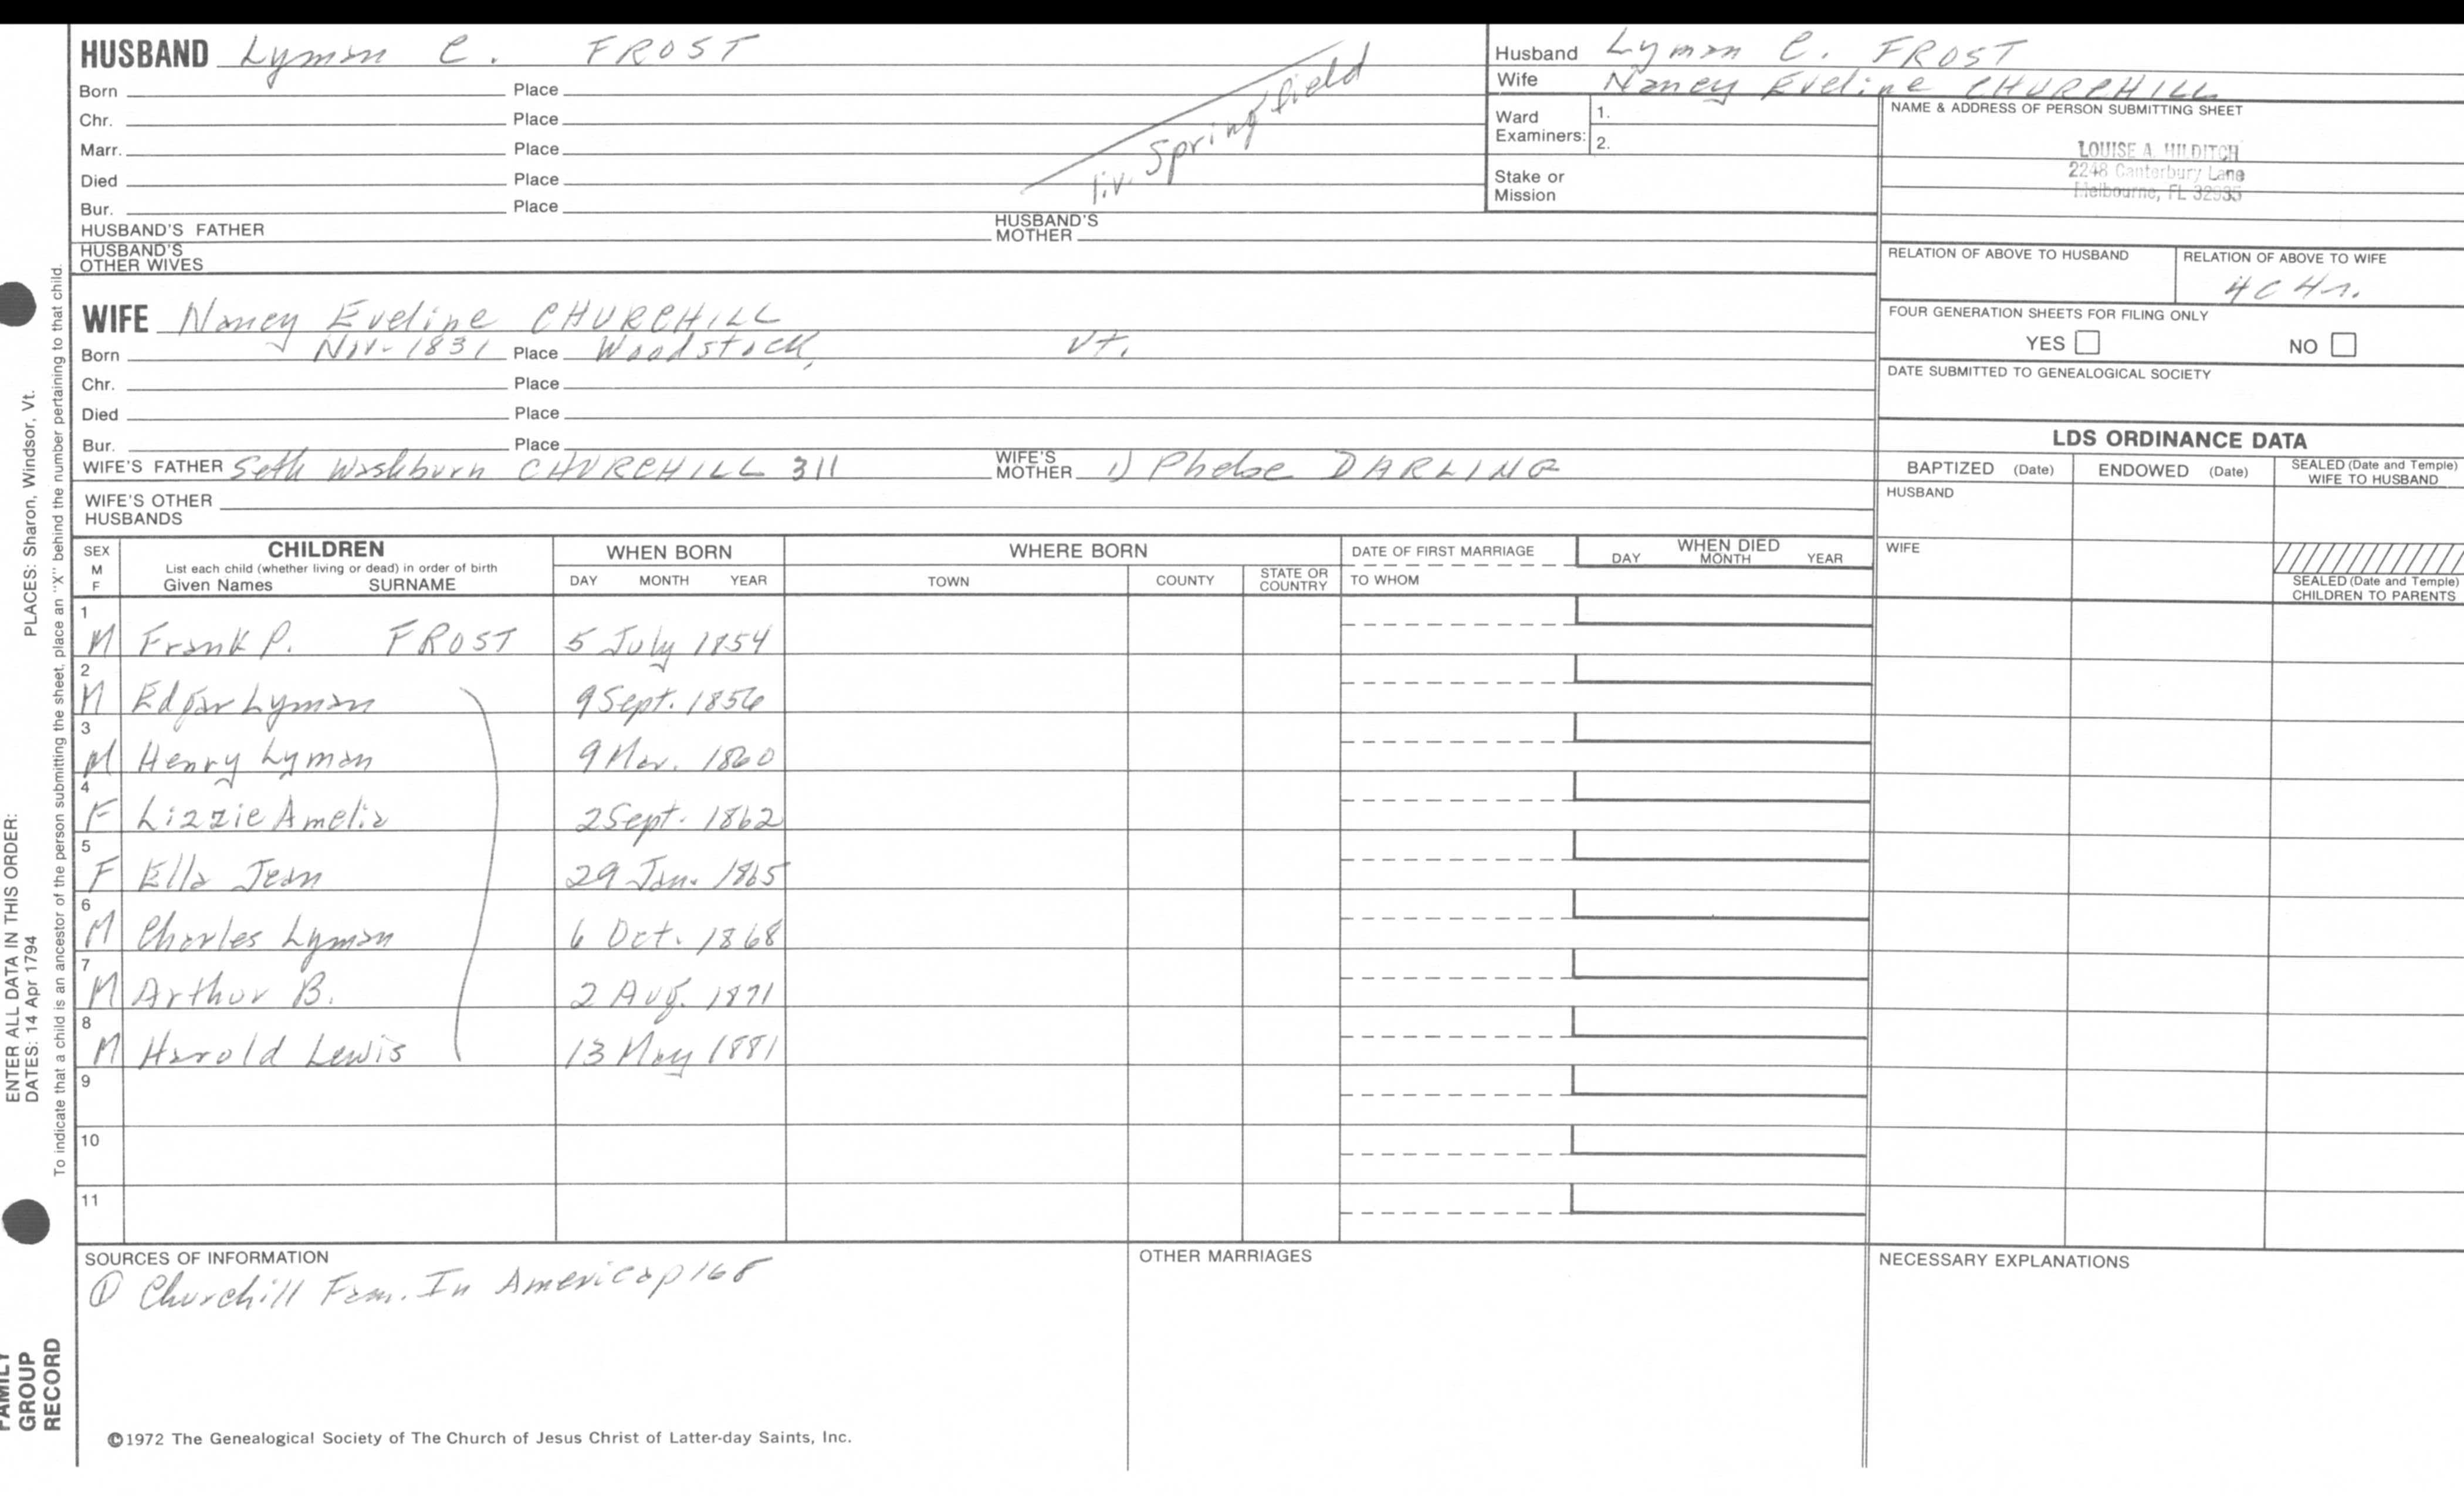 HUSBAND Lyman C. FROST
Born Place
Chr. Place
Marr. Place
Died Place
Bur. Place
liv. Springfield
HUSBAND'S FATHER HUSBAND'S MOTHER
HUSBAND'S OTHER WIVES
Husband Lyman C. FROST
Wife Nancy Eveline CHURCHILL
Ward Examiners: 1.
2.
Stake or Mission
NAME & ADDRESS OF PERSON SUBMITTING SHEET
LOUISE A. HILDITCH
2248 Canterbury Lane
Melbourne, FL 32935
RELATION OF ABOVE TO HUSBAND RELATION OF ABOVE TO WIFE
4C4r.
FOUR GENERATION SHEETS FOR FILING ONLY
YES NO
DATE SUBMITTED TO GENEALOGICAL SOCIETY
WIFE Nancy Eveline CHURCHILL
Born Nov. 1831 Place Woodstock, Vt.
Chr. Place
Died Place
Bur. Place
WIFE'S FATHER Seth Washburn CHURCHILL 311 WIFE'S MOTHER 1) Phebe DARLING
WIFE'S OTHER HUSBANDS
LDS ORDINANCE DATA
BAPTIZED (Date) ENDOWED (Date) SEALED (Date and Temple) WIFE TO HUSBAND
HUSBAND
WIFE
SEALED (Date and Temple) CHILDREN TO PARENTS
SEX M F CHILDREN WHEN BORN WHERE BORN DATE OF FIRST MARRIAGE WHEN DIED
List each child (whether living or dead) in order of birth
Given Names SURNAME DAY MONTH YEAR TOWN COUNTY STATE OR COUNTRY TO WHOM DAY MONTH YEAR
1 M Frank P. FROST 5 July 1854
2 M Edgar Lyman 9 Sept. 1856
3 M Henry Lyman 9 Mar. 1860
4 F Lizzie Amelia 2 Sept. 1862
5 F Ella Jean 29 Jan. 1865
6 M Charles Lyman 6 Oct. 1868
7 M Arthur B. 2 Aug. 1871
8 M Harold Lewis 13 May 1881
9
10
11
SOURCES OF INFORMATION
① Churchill Fam. In America p 168
OTHER MARRIAGES
NECESSARY EXPLANATIONS
©1972 The Genealogical Society of The Church of Jesus Christ of Latter-day Saints, Inc.
FAMILY GROUP RECORD
ENTER ALL DATA IN THIS ORDER:
DATES: 14 Apr 1794 PLACES: Sharon, Windsor, Vt.
To indicate that a child is an ancestor of the person submitting the sheet, place an "X" behind the number pertaining to that child.